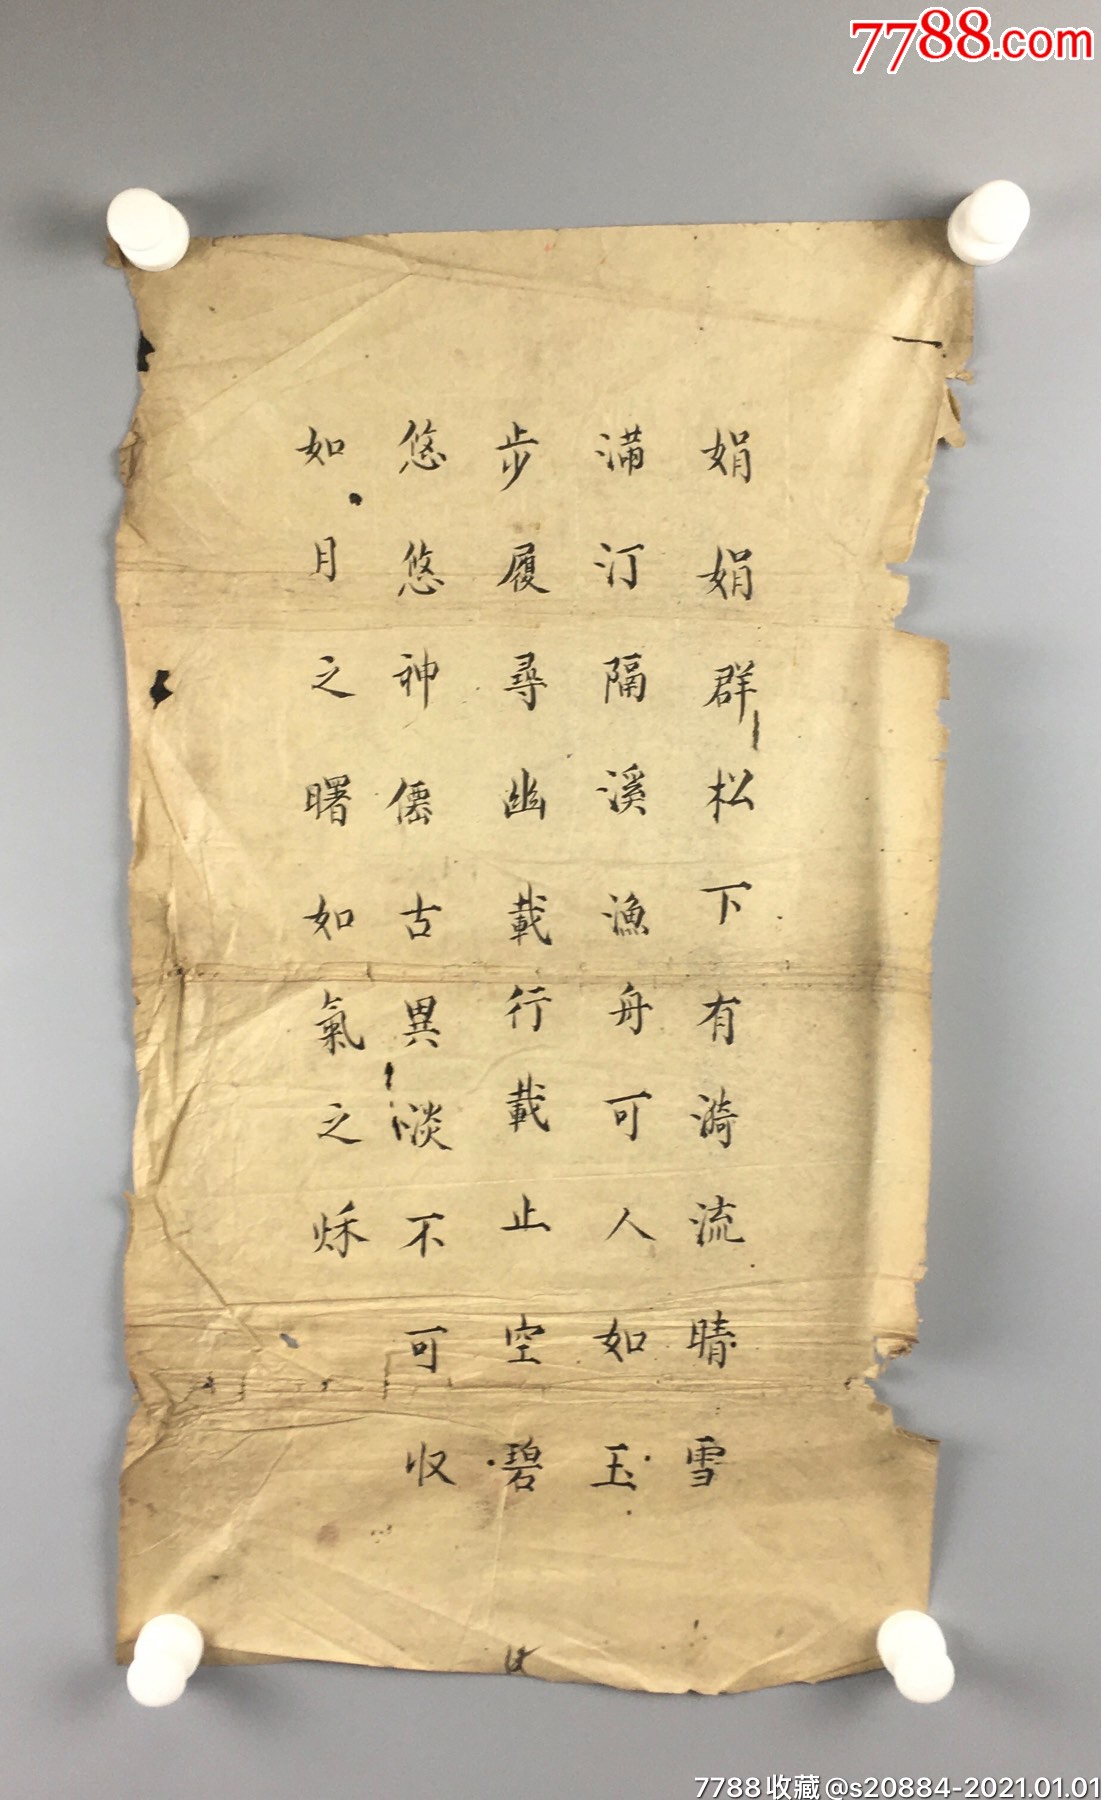 7788.com
娟娟群松下有漪流晴雪
滿汀隔溪漁舟可人如玉
步履尋幽載行載止空碧
悠悠神僊古異淡不可收
如月之曙如氣之秌
7788收藏@s20884-2021.01.01